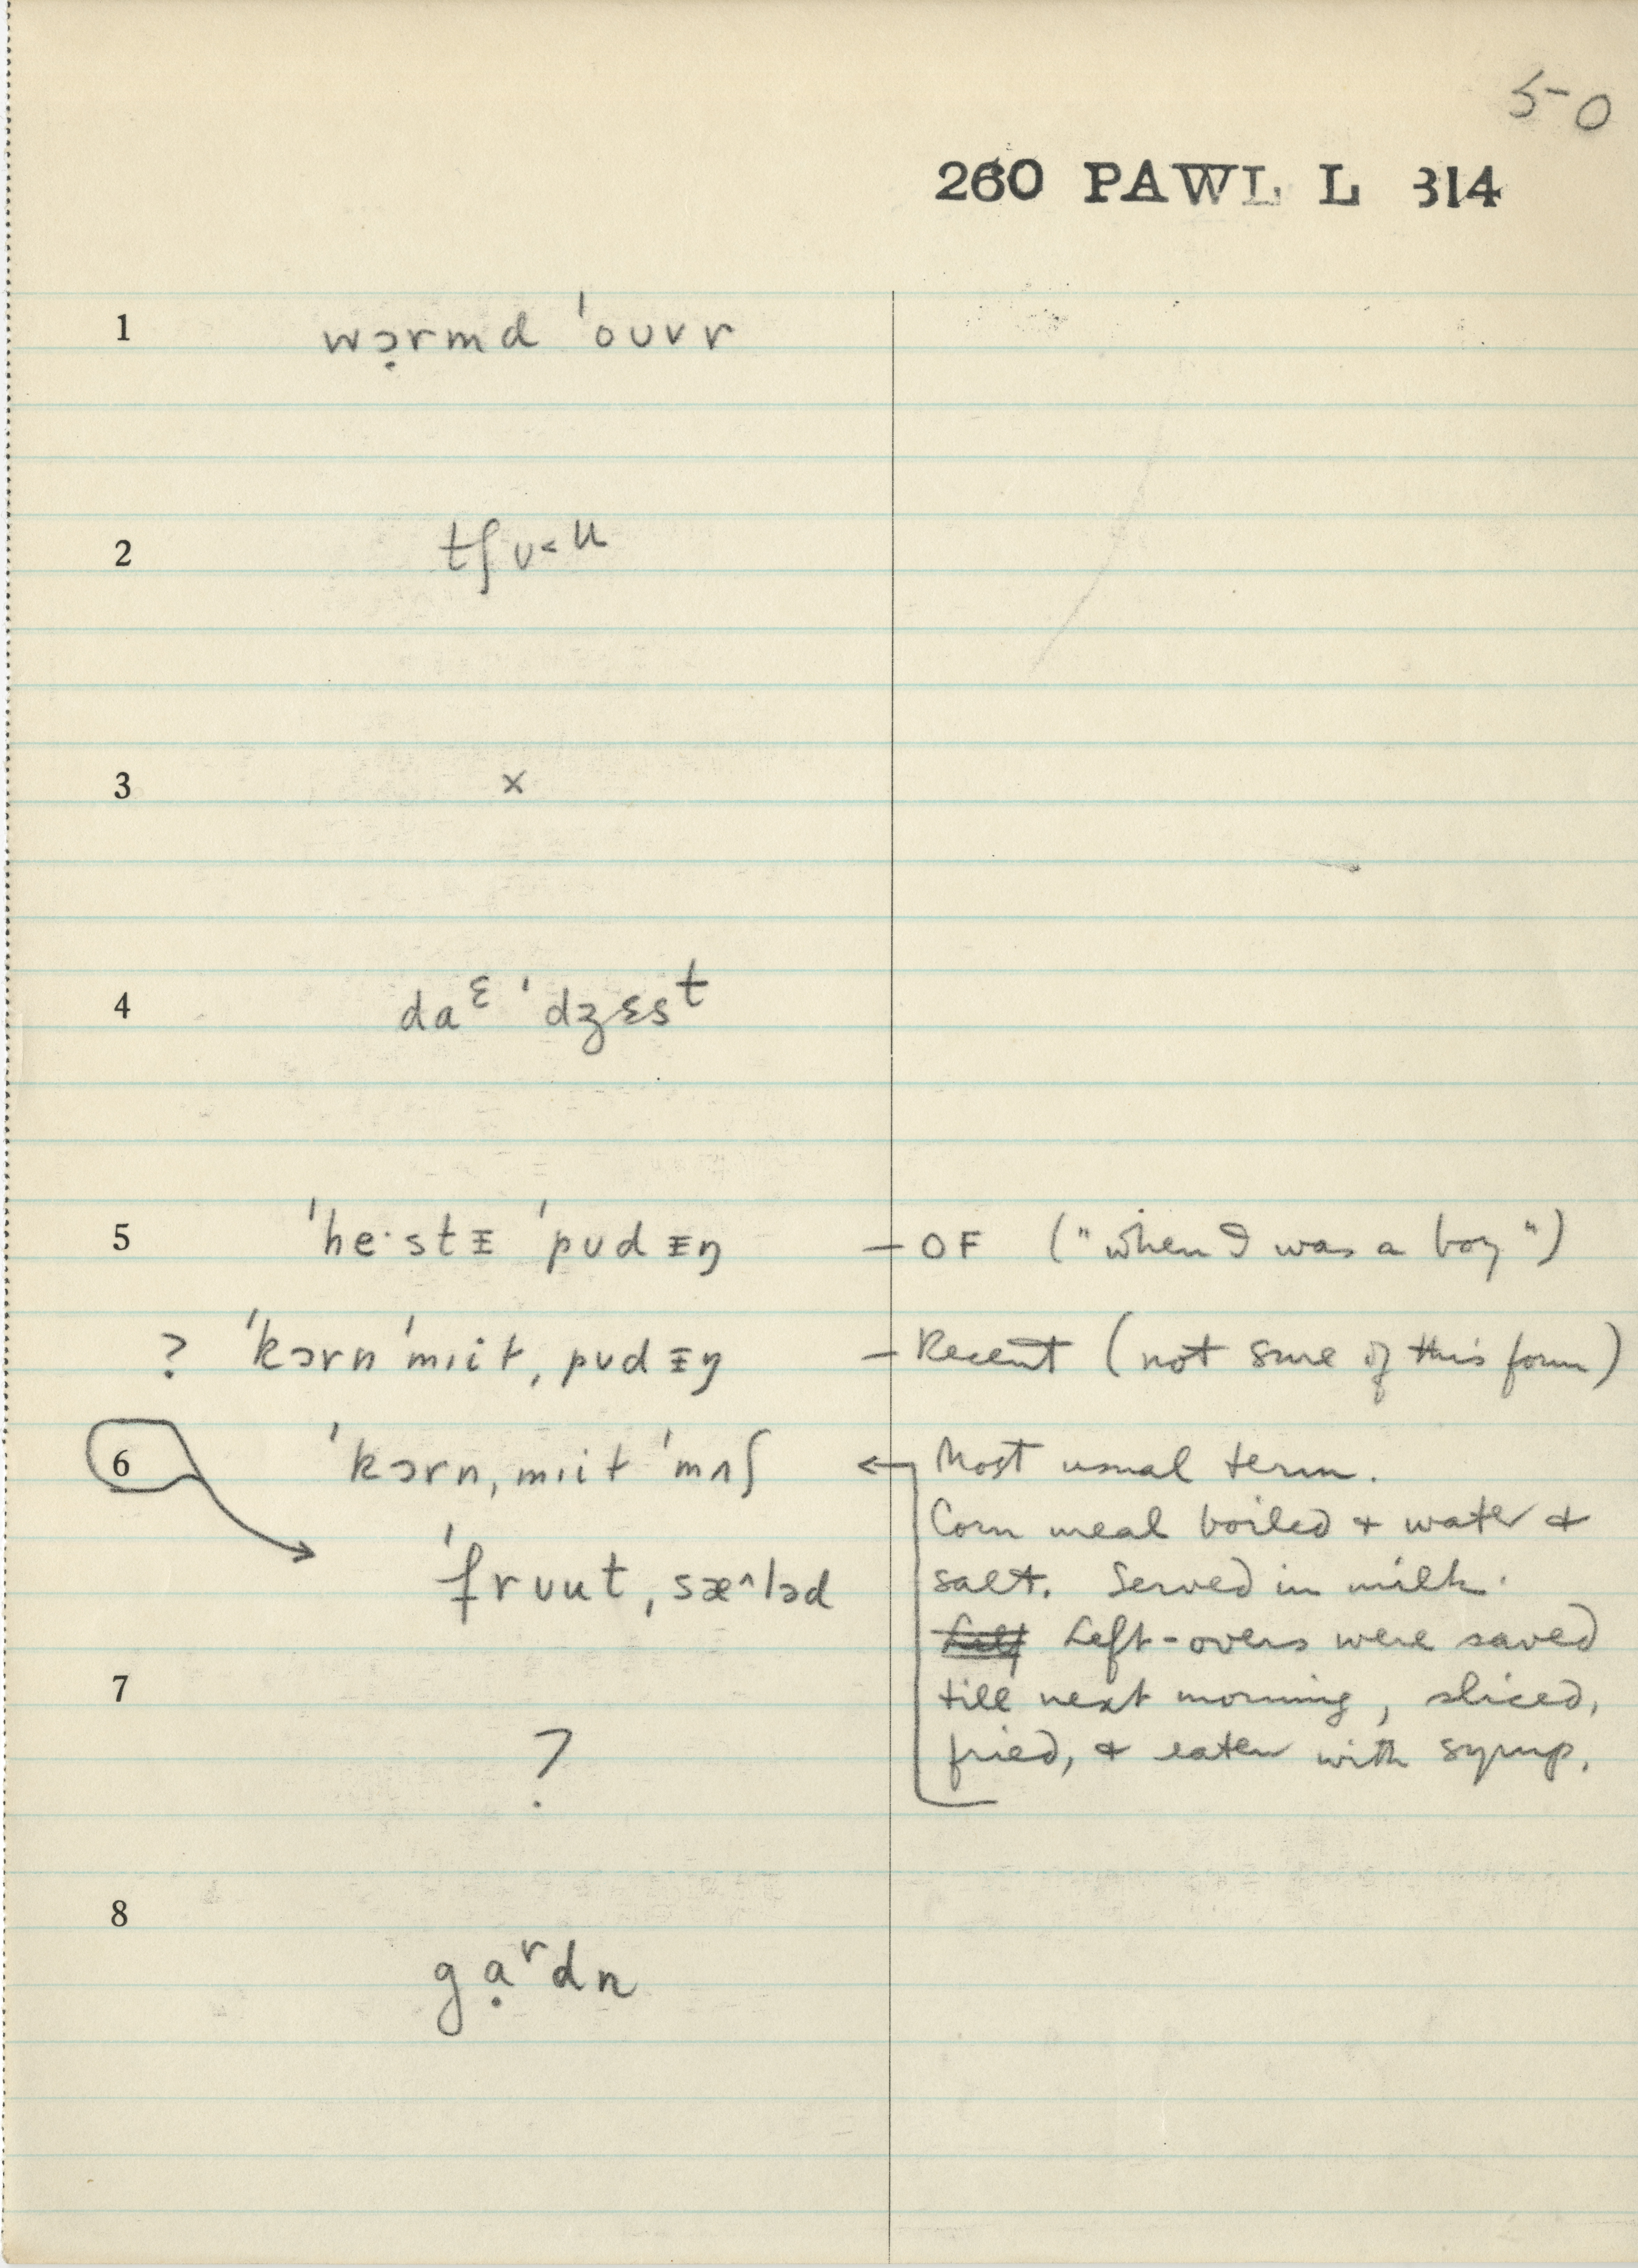 5-0
260 PAWL L 314
1 wɔ̣rmd ˈoᴜvr
2 tʃᴜ˂ᵘ
3 x
4 daᵋ ˈdʒɛsᵗ
5 ˈhe·stᵻ ˈpᴜdᵻŋ — OF ("when I was a boy")
? ˈkɔrn ˈmɪiɫ ˌpᴜdᵻŋ — Recent (not sure of this form)
6 ˈkɔrn ˌmɪiɫ ˈmʌʃ ← Most usual term.
Corn meal boiled + water +
ˈfrᴜut ˌsæ^ləd salt. Served in milk.
Left-overs were saved
7 till next morning, sliced,
? fried, + eaten with syrup.
8
gạʳdn